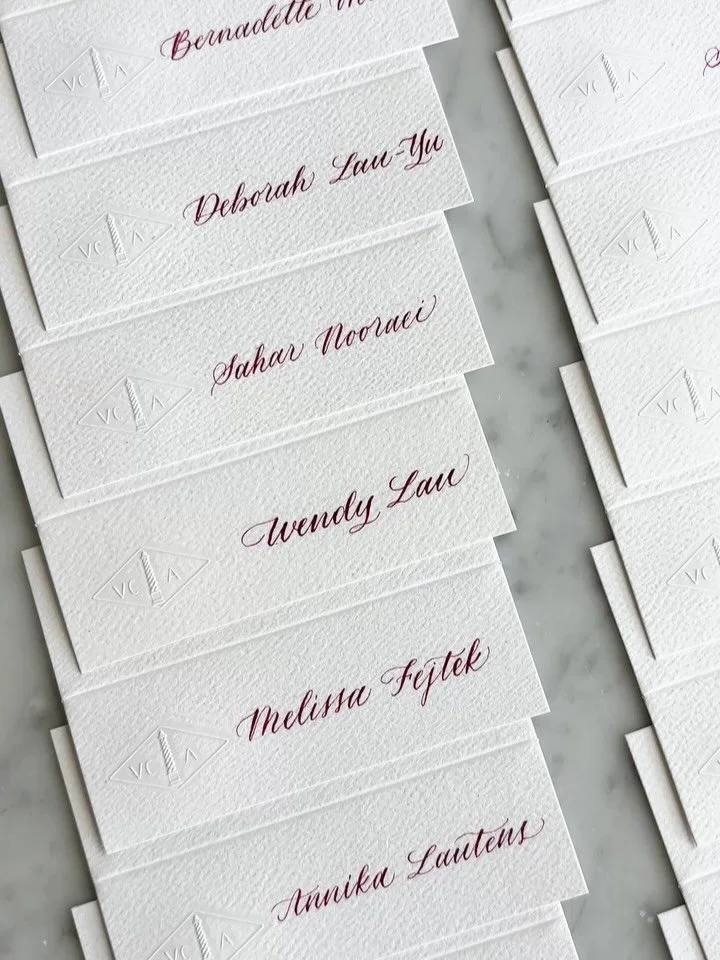 Bernadette
VC A
Deborah Lau-Yu
VC A
Sahar Nooraei
VC A
Wendy Lau
VC A
Melissa Fejtek
VC A
Annika Lautens
VC A
VC
VC A
VC
VC